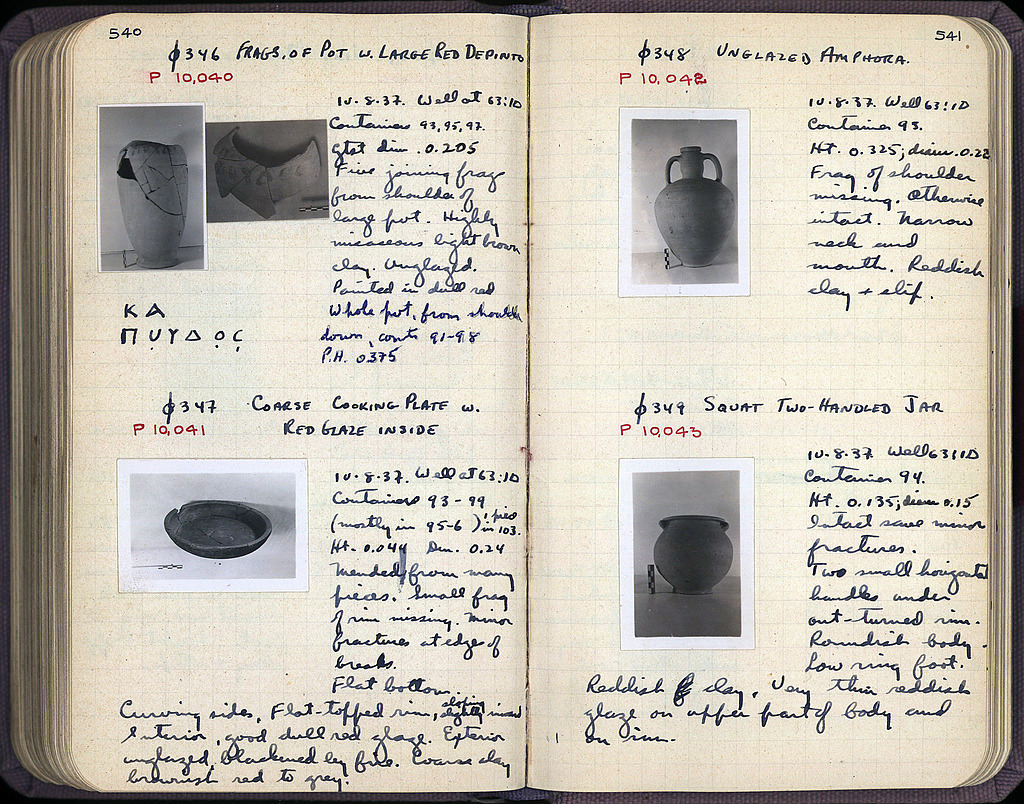 540
φ346 FRAGS. OF POT W. LARGE RED DEPINTO
P 10,040
10.8.37. Well at 63:ID
Containers 93, 95, 97.
gtst dim. 0.205
Five joining frags
from shoulder of
large pot. Highly
micaceous light brown
clay. Unglazed.
Painted in dull red
ΚΑ
ΠΥΥΔΟϹ
Whole pot, from shoulder
down, conts 91-98
P.H. 0.375
φ347 COARSE COOKING PLATE W.
RED GLAZE INSIDE
P 10,041
10.8.37. Well at 63:ID
Containers 93-99
(mostly in 95-6) 1 piece in 103.
Ht. 0.044 Dm. 0.24
Mended from many
pieces. Small frag
of rim missing. Minor
fractures at edge of
breaks.
Flat bottom.
Curving sides, Flat-topped rim, sloping slightly inward
Interior, good dull red glaze. Exterior
unglazed, blackened by fire. Coarse clay
brownish red to grey.
541
φ348 UNGLAZED AMPHORA.
P 10,042
10.8.37. Well 63:ID
Container 93.
Ht. 0.325; diam. 0.22
Frag of shoulder
missing. Otherwise
intact. Narrow
neck and
mouth. Reddish
clay + slip.
φ349 SQUAT TWO-HANDLED JAR
P 10,043
10.8.37. Well 63:ID
Container 94.
Ht. 0.135; diam 0.15
Intact save minor
fractures.
Two small horizontal
handles under
out-turned rim.
Roundish body.
Low ring foot.
Reddish clay. Very thin reddish
glaze on upper part of body and
on rim.